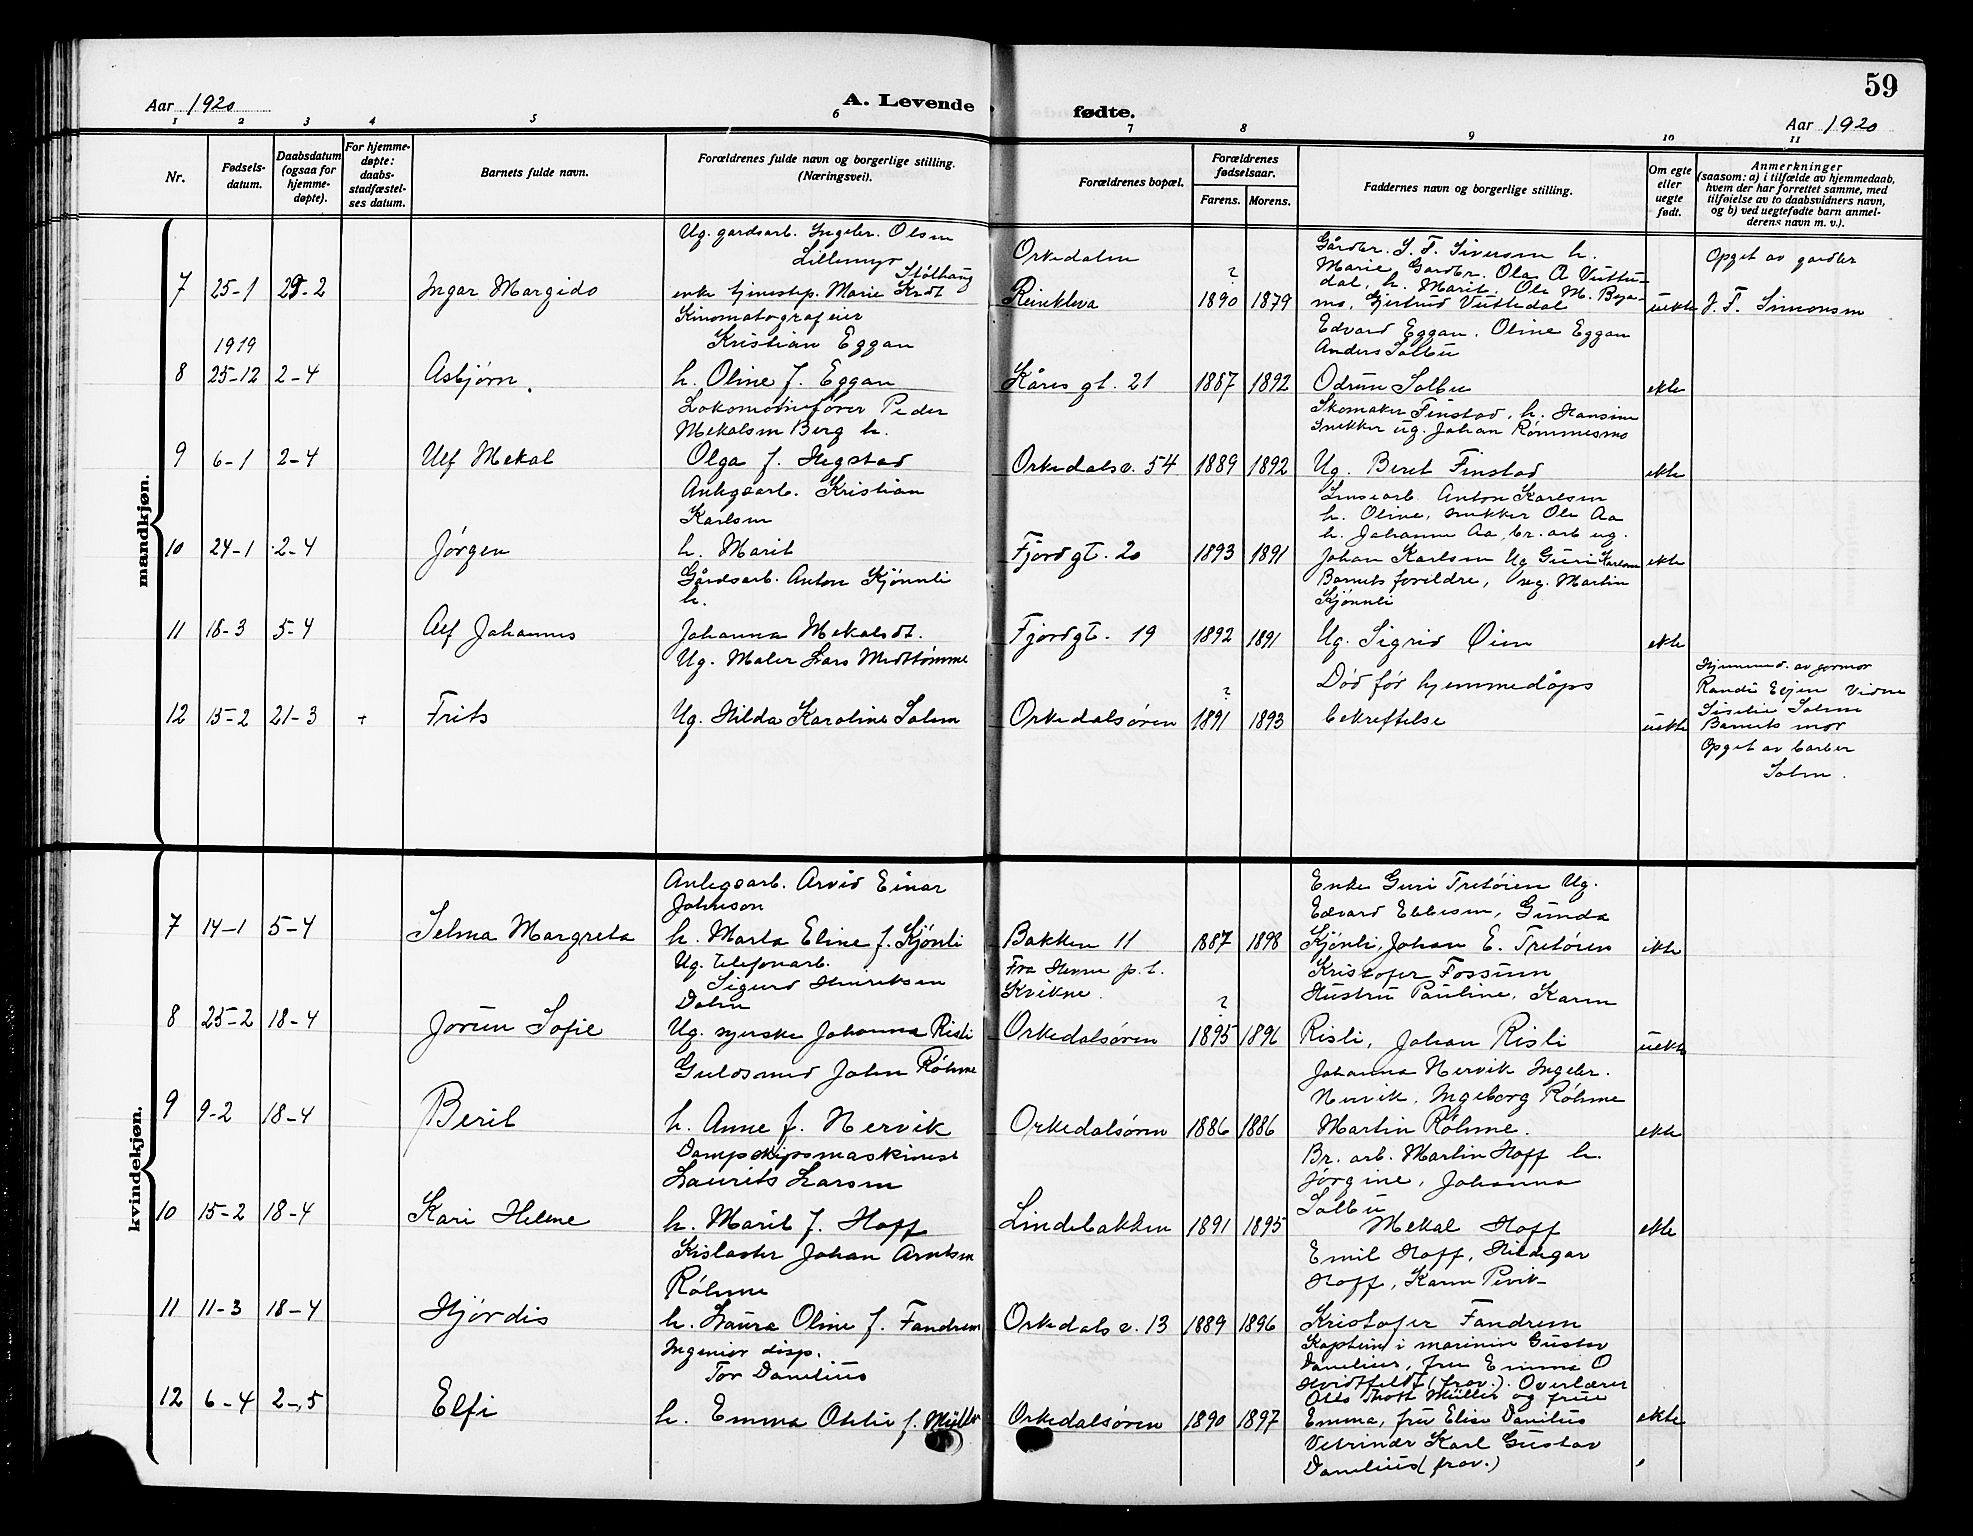 59
Aar 1920
A. Levende
fødte.
Aar 1920
1 2 3 4 5 6 7 8 9 10 11
Nr.
Fødsels-
datum.
Daabsdatum
(ogsaa for
hjemme-
døpte).
For hjemme-
døpte:
daabs-
stadfæstel-
ses datum.
Barnets fulde navn.
Forældrenes fulde navn og borgerlige stilling.
(Næringsvei).
Forældrenes bopæl.
Forældrenes
fødselsaar.
Farens. Morens.
Faddernes navn og borgerlige stilling.
Om egte
eller
uegte
født.
Anmerkninger
(saasom: a) i tilfælde av hjemmedaab,
hvem der har forrettet samme, med
tilføielse av to daabsvidners navn,
og b) ved uegtefødte barn anmel-
derens navn m. v.).
mandkjøn.
7 25-1 29-2 Ingar Margido
Ug. gardsarb. Ingebr. Olsen
Lillemyr
Støthaug
enke tjenestep. Marie Krdt
Orkedalen
Rinkleva
? 1890 1879
Gårdbr. S. F. Siversen h.
Marie Gardbr. Ola A Vuttu-
dal, h. Marit, Ole M. Bya-
mo, Gjertrud Vuttudal
uekte
Opget av gardbr
J. F. Simonsen
1919
8 25-12 2-4 Asbjørn.
Kinomatografeier
Kristian Eggan
h. Oline f. Eggan
Kåres gt. 21 1887 1892
Edvard Eggan, Oline Eggan
Anders Solbu
Odrun Solbu
ekte
9 6-1 2-4 Ulf Mekal
Lokomotivfører Peder
Mekalsen Berg h.
Olga f. Hegstad
Orkedalsv. 54 1889 1892
Skomaker Finstad, h. Hansine
Snekker ug. Johan Rømmesmo
Ug. Berit Finstad
ekte
10 24-1 2-4 Jørgen
Anlegsarb. Kristian
Karlsen
h. Marit
Fjordgt. 20 1893 1891
Linsearb. Anton Karlsen
h. Oline, snekker Ole Aa
h. Johanne Aa, br. arb ug.
Johan Karlsen Ug Guri Karlsen
ekte
11 18-3 5-4 Alf Johannes
Gårdsarb. Anton Kjønnli
h.
Johanna Mekalsdt.
Fjordgt. 19 1892 1891
Barnets foreldre, ug. Martin
Kjønnli
Ug. Sigrid Øien
ekte
12 15-2 21-3 + Frits
Ug. Maler Lars Midttømme
Ug. Hilda Karoline Solem
Orkedalsøren ? 1891 1893
Død før hjemmedåps
bekreftelse
uekte
Hjemmed. av gormor
Randi Eijen Vidne
Siselie Solem
Barnets mor
Opget av barber
Solem.
kvindekjøn.
7 14-1 5-4 Selma Margreta
Anlegsarb. Arvid Einar
Johnson
h. Marta Eline f. Kjønli
Bakken 11 1887 1898
Enke Guri Tretøien Ug.
Edvard Ebbesen, Gunda
Kjønli, Johan E. Tretøien
ekte
8 25-2 18-4 Jorun Sofie
Ug. telefonarb.
Sigurd Henriksen
Dalen
Ug. syerske Johanna Risli
Fra Henne p. t.
Kvikne.
Orkedalsøren ? 1895 1896
Kristofer Fossum
Hustru Pauline, Karen
Risli, Johan Risli
uekte
9 9-2 18-4 Berit
Guldsmed John Røhme
h. Anne f. Nervik
Orkedalsøren 1886 1886
Johanna Nervik Ingebr.
Nervik, Ingeborg Røhme
Martin Røhme.
ekte
10 15-2 18-4 Kari Helene
Dampskipsmaskinist
Laurits Larsen
h. Marit f. Hoff
Lindebakken 1891 1895
Br. arb. Martin Hoff h.
Jørgine, Johanna
Solbu
Mekal Hoff
ekte
11 11-3 18-4 Hjørdis
Kislaster Johan Arntsen
Røhme
h. Laura Oline f. Fandrem
Orkedalsv. 13 1889 1896
Emil Hoff, Hildegar
Hoff, Karen Pevik
Kristofer Fandrem
12 6-4 2-5 Elfi
Ingeniør disp.
Tor Danelius
h. Emma Ottilie f. Müller
Orkedalsøren 1890 1897
Kaptein i marinen Gustav
Danelius, fru Emma O
Hvidtfeldt (frav.). Overlærer
Otto Thott Müller og frue
Emma, fru Elise Danelius
Vetrinær Karl Gustav
Danelius (frav.)
ekte